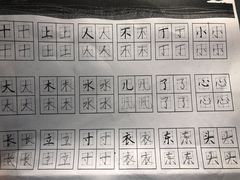 十十 上上 人人 不不 丁丁 小小
十十 上上 人人 不不 丁丁 小小
大大 木木 水水 儿儿 了了 心心
大大 木木 水水 儿儿 了了 心心
长长 立立 寸寸 衣衣 东东 头头
长长 立立 寸寸 衣衣 东东 头头